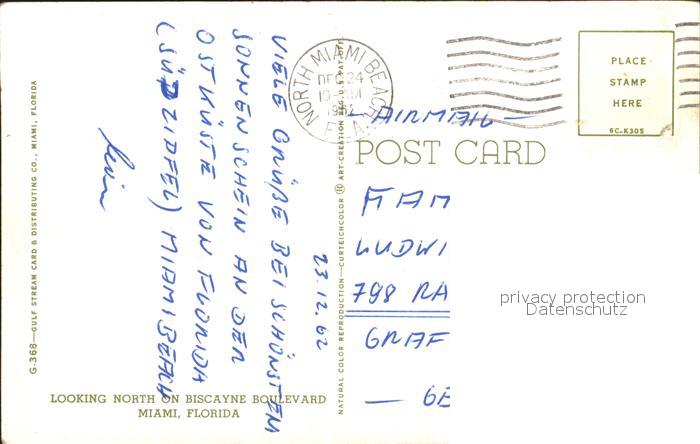 23.12.62
VIELE GRÜßE BEI SCHÖNSTEM
SONNENSCHEIN AN DER
OSTKÜSTE VON FLORIDA
(SÜDZIPFEL) MIAMI BEACH
G-368—GULF STREAM CARD & DISTRIBUTING CO., MIAMI, FLORIDA
LOOKING NORTH ON BISCAYNE BOULEVARD
MIAMI, FLORIDA
NATURAL COLOR REPRODUCTION—CURTEICHCOLOR ® ART-CREATION REG. U.S. PAT. OFF.
NORTH MIAMI BEACH
DEC 24
1962
FLA.
PLACE
STAMP
HERE
6C-K305
— AIRMAIL —
POST CARD
FAM
LUDWI
798 RA
GRAF
— GE
privacy protection
Datenschutz